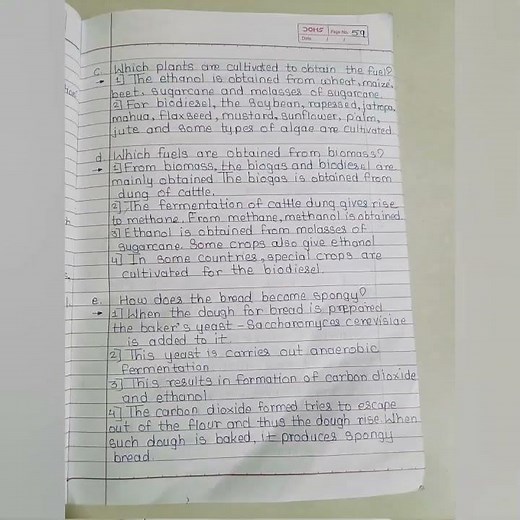 Page No.
Date
c. Which plants are cultivated to obtain the fuel?
→ 1] The ethanol is obtained from wheat, maize,
beet, sugarcane and molasses of sugarcane.
2] For biodiesel, the soybean, rapessed, jatropa,
mahua, flaxseed, mustard, sunflower, palm,
jute and some types of algae are cultivated.
d. Which fuels are obtained from biomass?
→ 1] From biomass, the biogas and biodiesel are
mainly obtained. The biogas is obtained from
dung of cattle.
2] The fermentation of cattle dung gives rise
to methane. From methane, methanol is obtained.
3] Ethanol is obtained from molasses of
sugarcane. Some crops also give ethanol
4] In some countries, special crops are
cultivated for the biodiesel.
e. How does the bread become spongy?
→ 1] When the dough for bread is prepared
the baker's yeast - Saccharomyces cerevisiae
is added to it.
2] This yeast is carries out anaerobic
fermentation.
3] This results in formation of carbon dioxide
and ethanol.
4] The carbon dioxide formed tries to escape
out of the flour and thus the dough rise. When
such dough is baked, it produces spongy
bread.